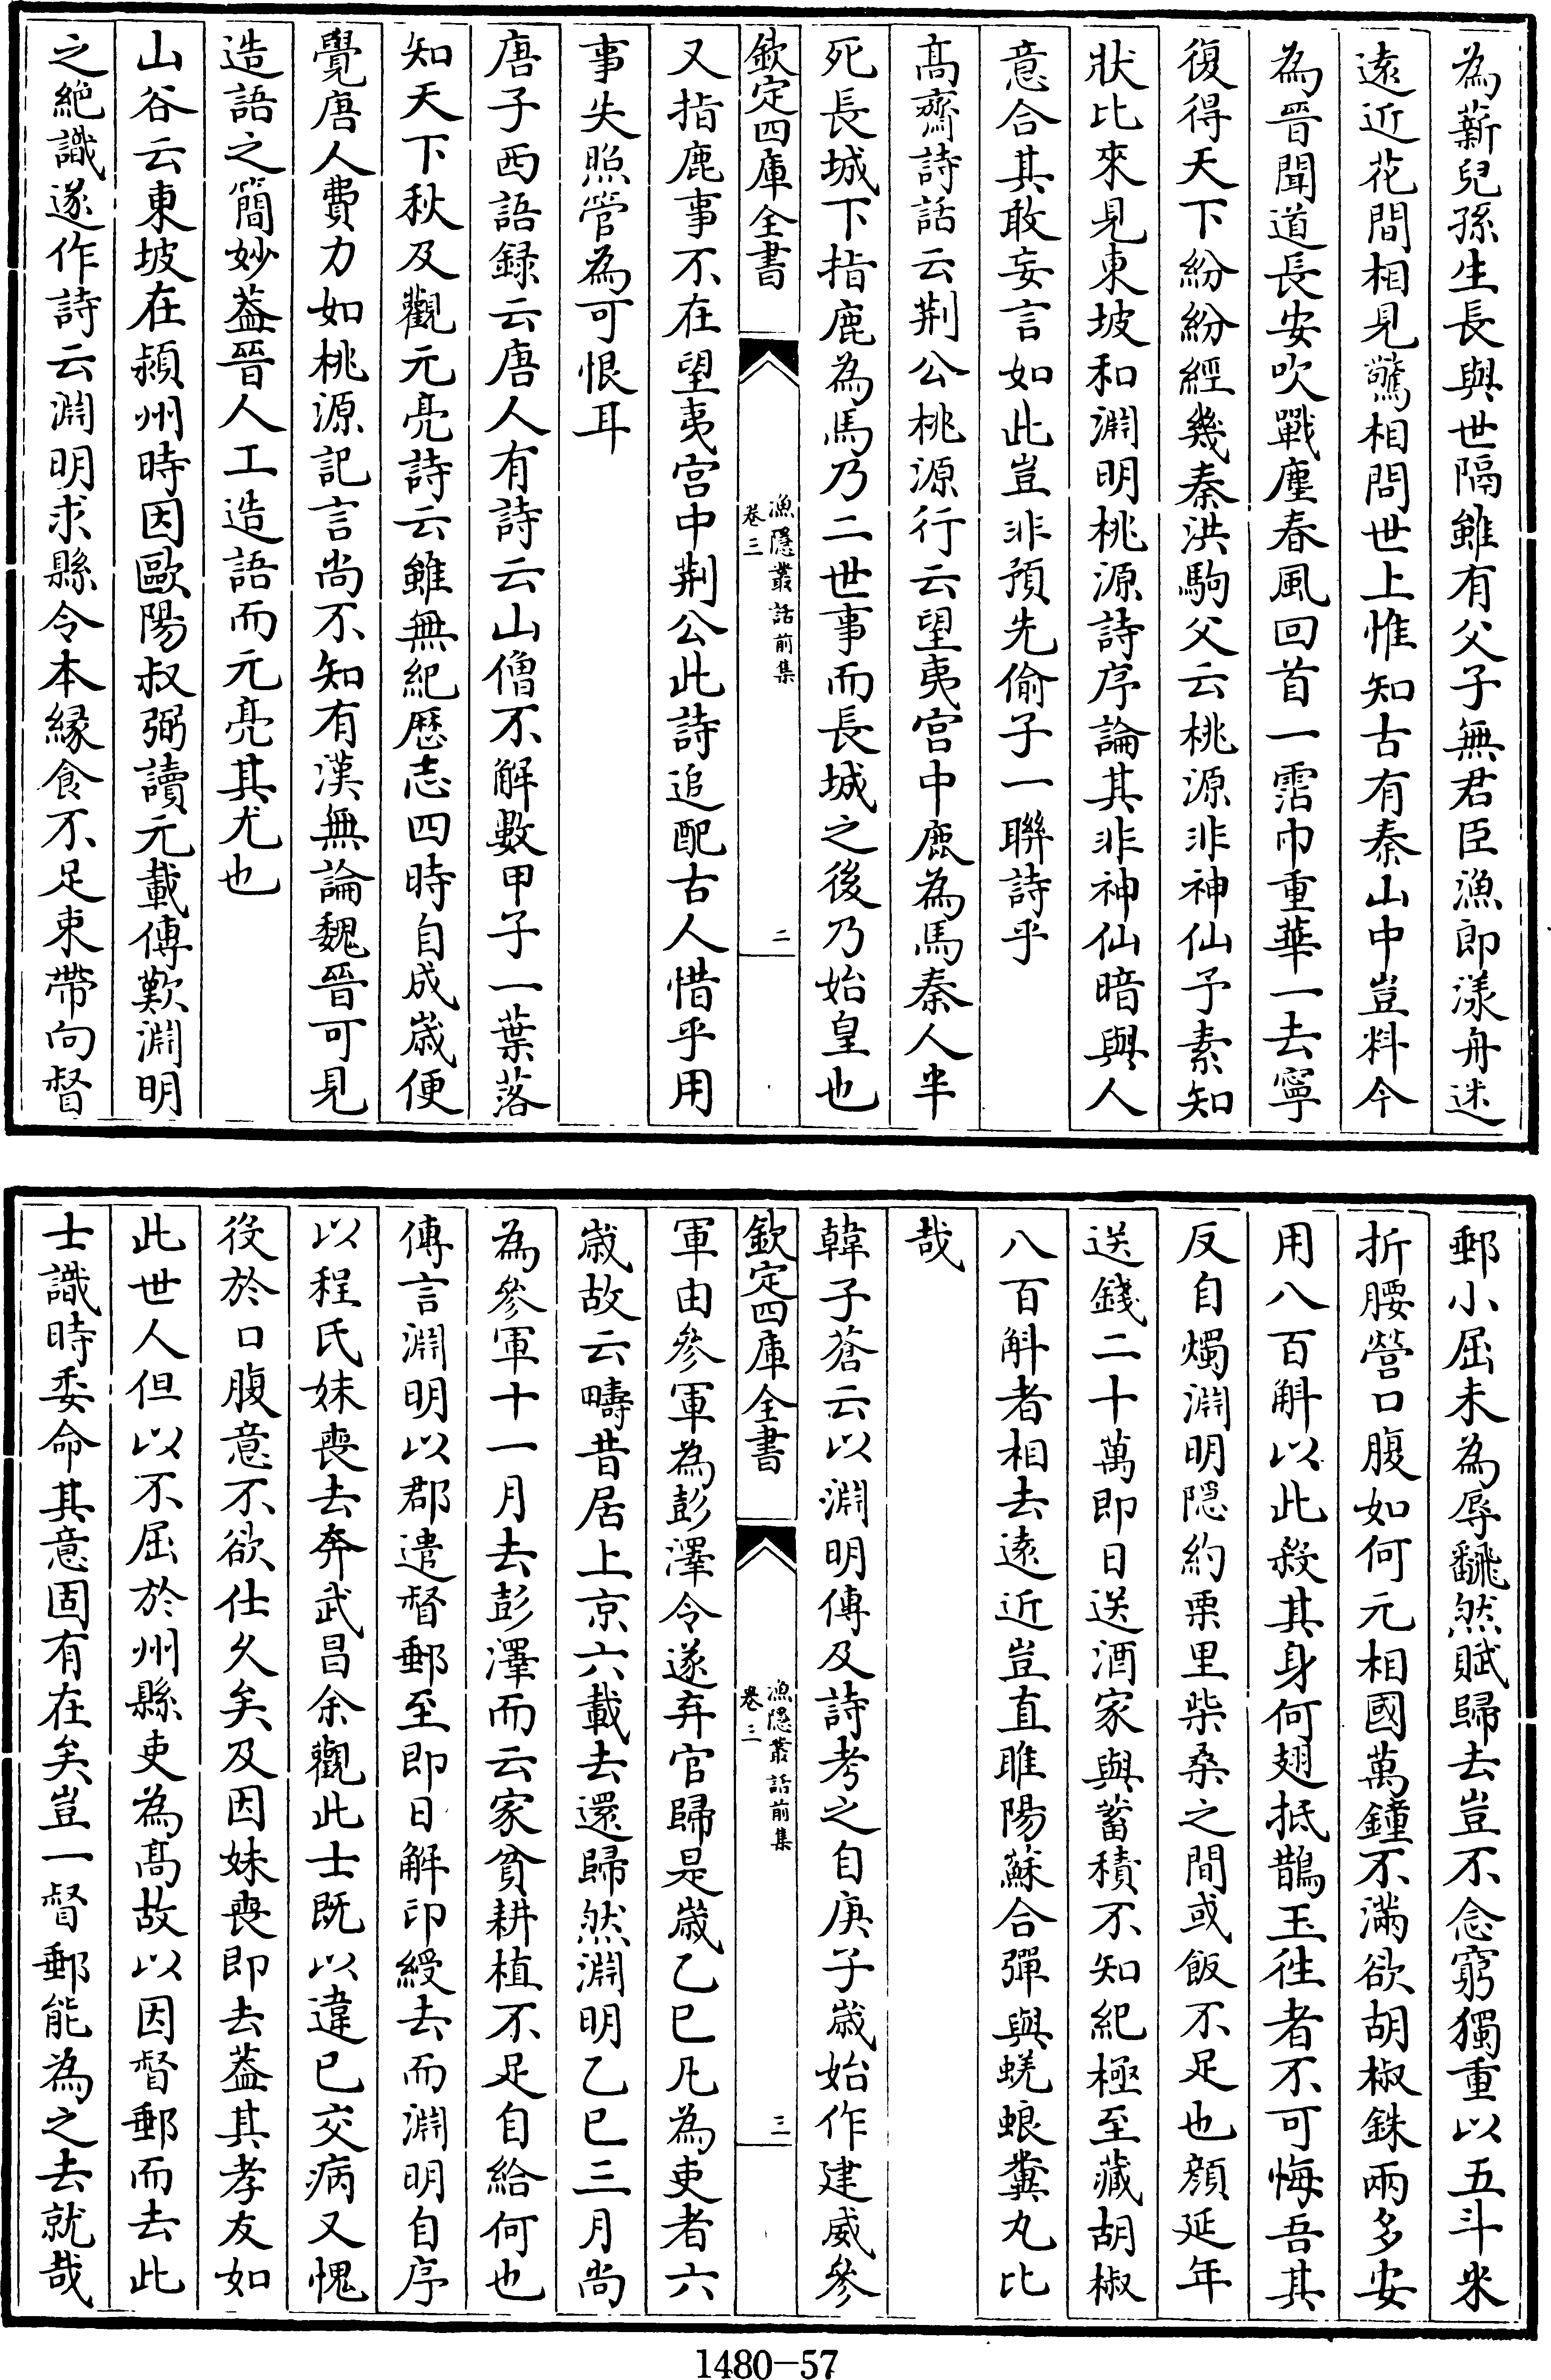 為薪兒孫生長與世隔雖有父子無君臣漁郎漾舟迷
遠近花間相見驚相問世上惟知古有秦山中豈料今
為晉聞道長安吹戰塵春風回首一霑巾重華一去寧
復得天下紛紛經幾秦洪駒父云桃源非神仙予素知
狀比來見東坡和淵明桃源詩序論其非神仙暗與人
意合其敢妄言如此豈非預先偷子一聯詩乎
髙齋詩話云荆公桃源行云望夷宮中鹿為馬秦人半
死長城下指鹿為馬乃二世事而長城之後乃始皇也
欽定四庫全書
漁隱叢話前集
卷三
二
又指鹿事不在望夷宮中荆公此詩追配古人惜乎用
事失照管為可恨耳
唐子西語録云唐人有詩云山僧不解數甲子一葉落
知天下秋及觀元亮詩云雖無紀歴志四時自成歲便
覺唐人費力如桃源記言尚不知有漢無論魏晉可見
造語之簡妙葢晉人工造語而元亮其尤也
山谷云東坡在潁州時因歐陽叔弼讀元載傳歎淵明
之絶識遂作詩云淵明求縣令本縁食不足束帶向督
郵小屈未為辱飜然賦歸去豈不念窮獨重以五斗米
折腰營口腹如何元相國萬鐘不滿欲胡椒銖兩多安
用八百斛以此殺其身何翅抵鵲玉徃者不可悔吾其
反自燭淵明隠約栗里柴桑之間或飯不足也顔延年
送錢二十萬即日送酒家與蓄積不知紀極至藏胡椒
八百斛者相去遠近豈直睢陽蘇合彈與蜣蜋糞丸比
哉
韓子蒼云以淵明傳及詩考之自庚子歲始作建威參
欽定四庫全書
漁隱叢話前集
卷三
三
軍由參軍為彭澤令遂弃官歸是歲乙巳凡為吏者六
歲故云疇昔居上京六載去還歸然淵明乙巳三月尚
為參軍十一月去彭澤而云家貧耕植不足自給何也
傳言淵明以郡遣督郵至即日解印綬去而淵明自序
以程氏妹喪去奔武昌余觀此士既以違已交病又愧
役於口腹意不欲仕久矣及因妹喪即去葢其孝友如
此世人但以不屈於州縣吏為髙故以因督郵而去此
士識時委命其意固有在矣豈一督郵能為之去就哉
1480-57